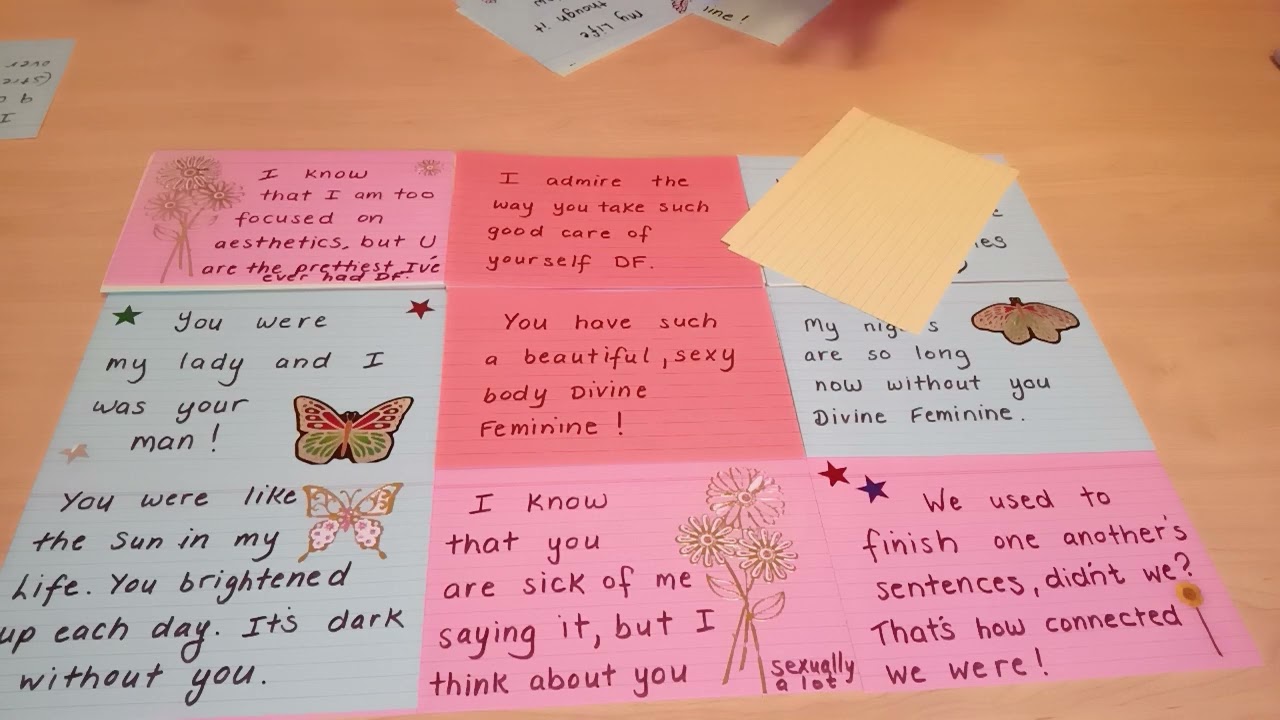 my Life
though it
ine!
over
(stic
I
I know
that I am too
focused on
aesthetics, but U
are the prettiest I've
ever had DF.
I admire the
way you take such
good care of
yourself DF.
ies
You were
my lady and I
was your
man!
You have such
a beautiful, sexy
body Divine
Feminine!
My
are so long
now without you
Divine Feminine.
You were like
the sun in my
Life. You brightened
up each day. It's dark
without you.
I know
that you
are sick of me
saying it, but I
think about you
sexually
a lot
We used to
finish one another's
sentences, didn't we?
That's how connected
we were!